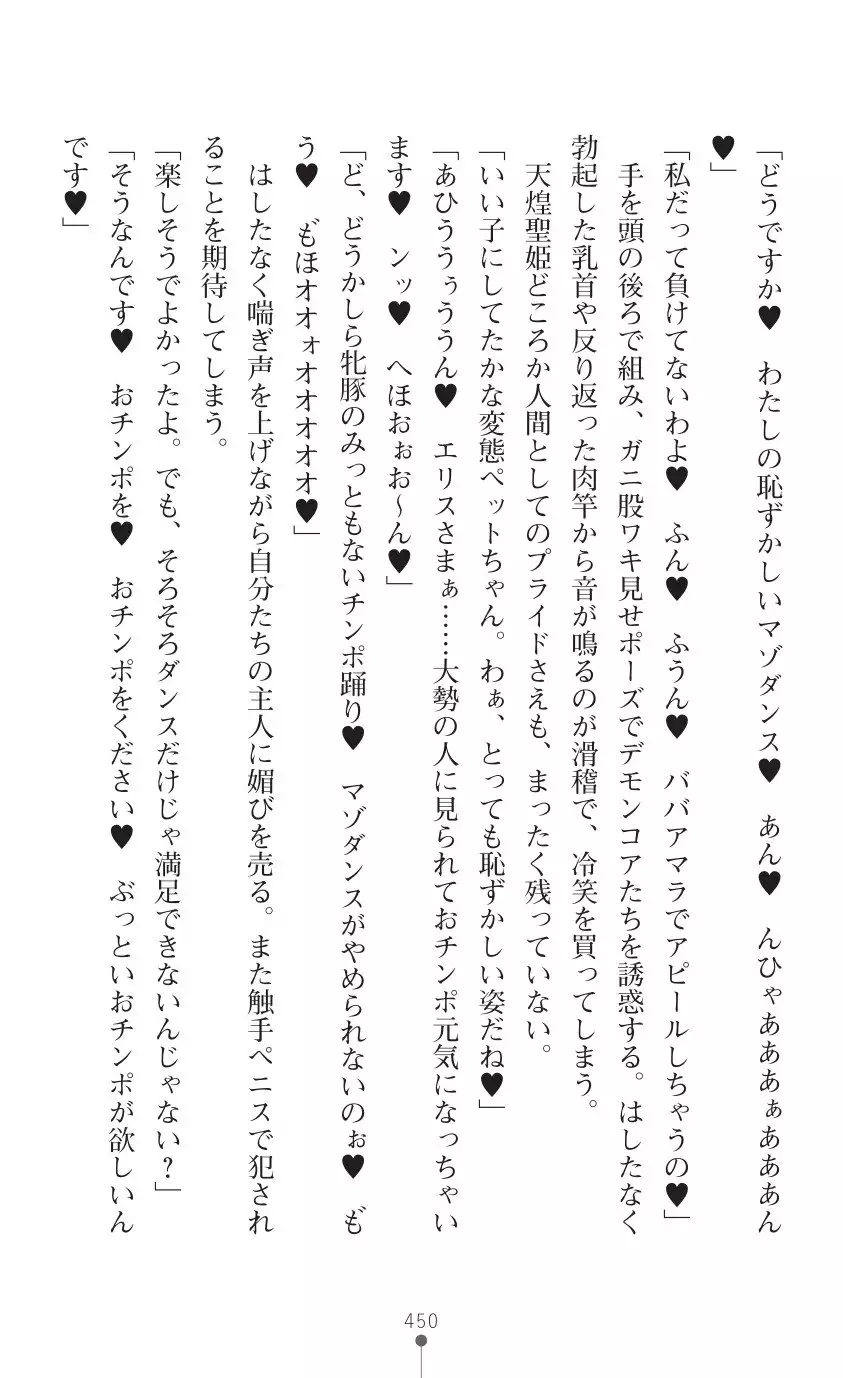 「どうですか♥　わたしの恥ずかしいマゾダンス♥　あん♥　んひゃああぁあああん
♥」
「私だって負けてないわよ♥　ふん♥　ふうん♥　ババアマラでアピールしちゃうの♥」
　手を頭の後ろで組み、ガニ股ワキ見せポーズでデモンコアたちを誘惑する。はしたなく
勃起した乳首や反り返った肉竿から音が鳴るのが滑稽で、冷笑を買ってしまう。
　天煌聖姫どころか人間としてのプライドさえも、まったく残っていない。
「いい子にしてたかな変態ペットちゃん。わぁ、とっても恥ずかしい姿だね♥」
「あひううぅううん♥　エリスさまぁ……大勢の人に見られておチンポ元気になっちゃい
ます♥　ンッ♥　へほおぉお～ん♥」
「ど、どうかしら牝豚のみっともないチンポ踊り♥　マゾダンスがやめられないのぉ♥　も゛
う♥　も゛ほオオォオオオオオ♥」
　はしたなく喘ぎ声を上げながら自分たちの主人に媚びを売る。また触手ペニスで犯され
ることを期待してしまう。
「楽しそうでよかったよ。でも、そろそろダンスだけじゃ満足できないんじゃない？」
「そうなんです♥　おチンポを♥　おチンポをください♥　ぶっといおチンポが欲しいん
です♥」
450